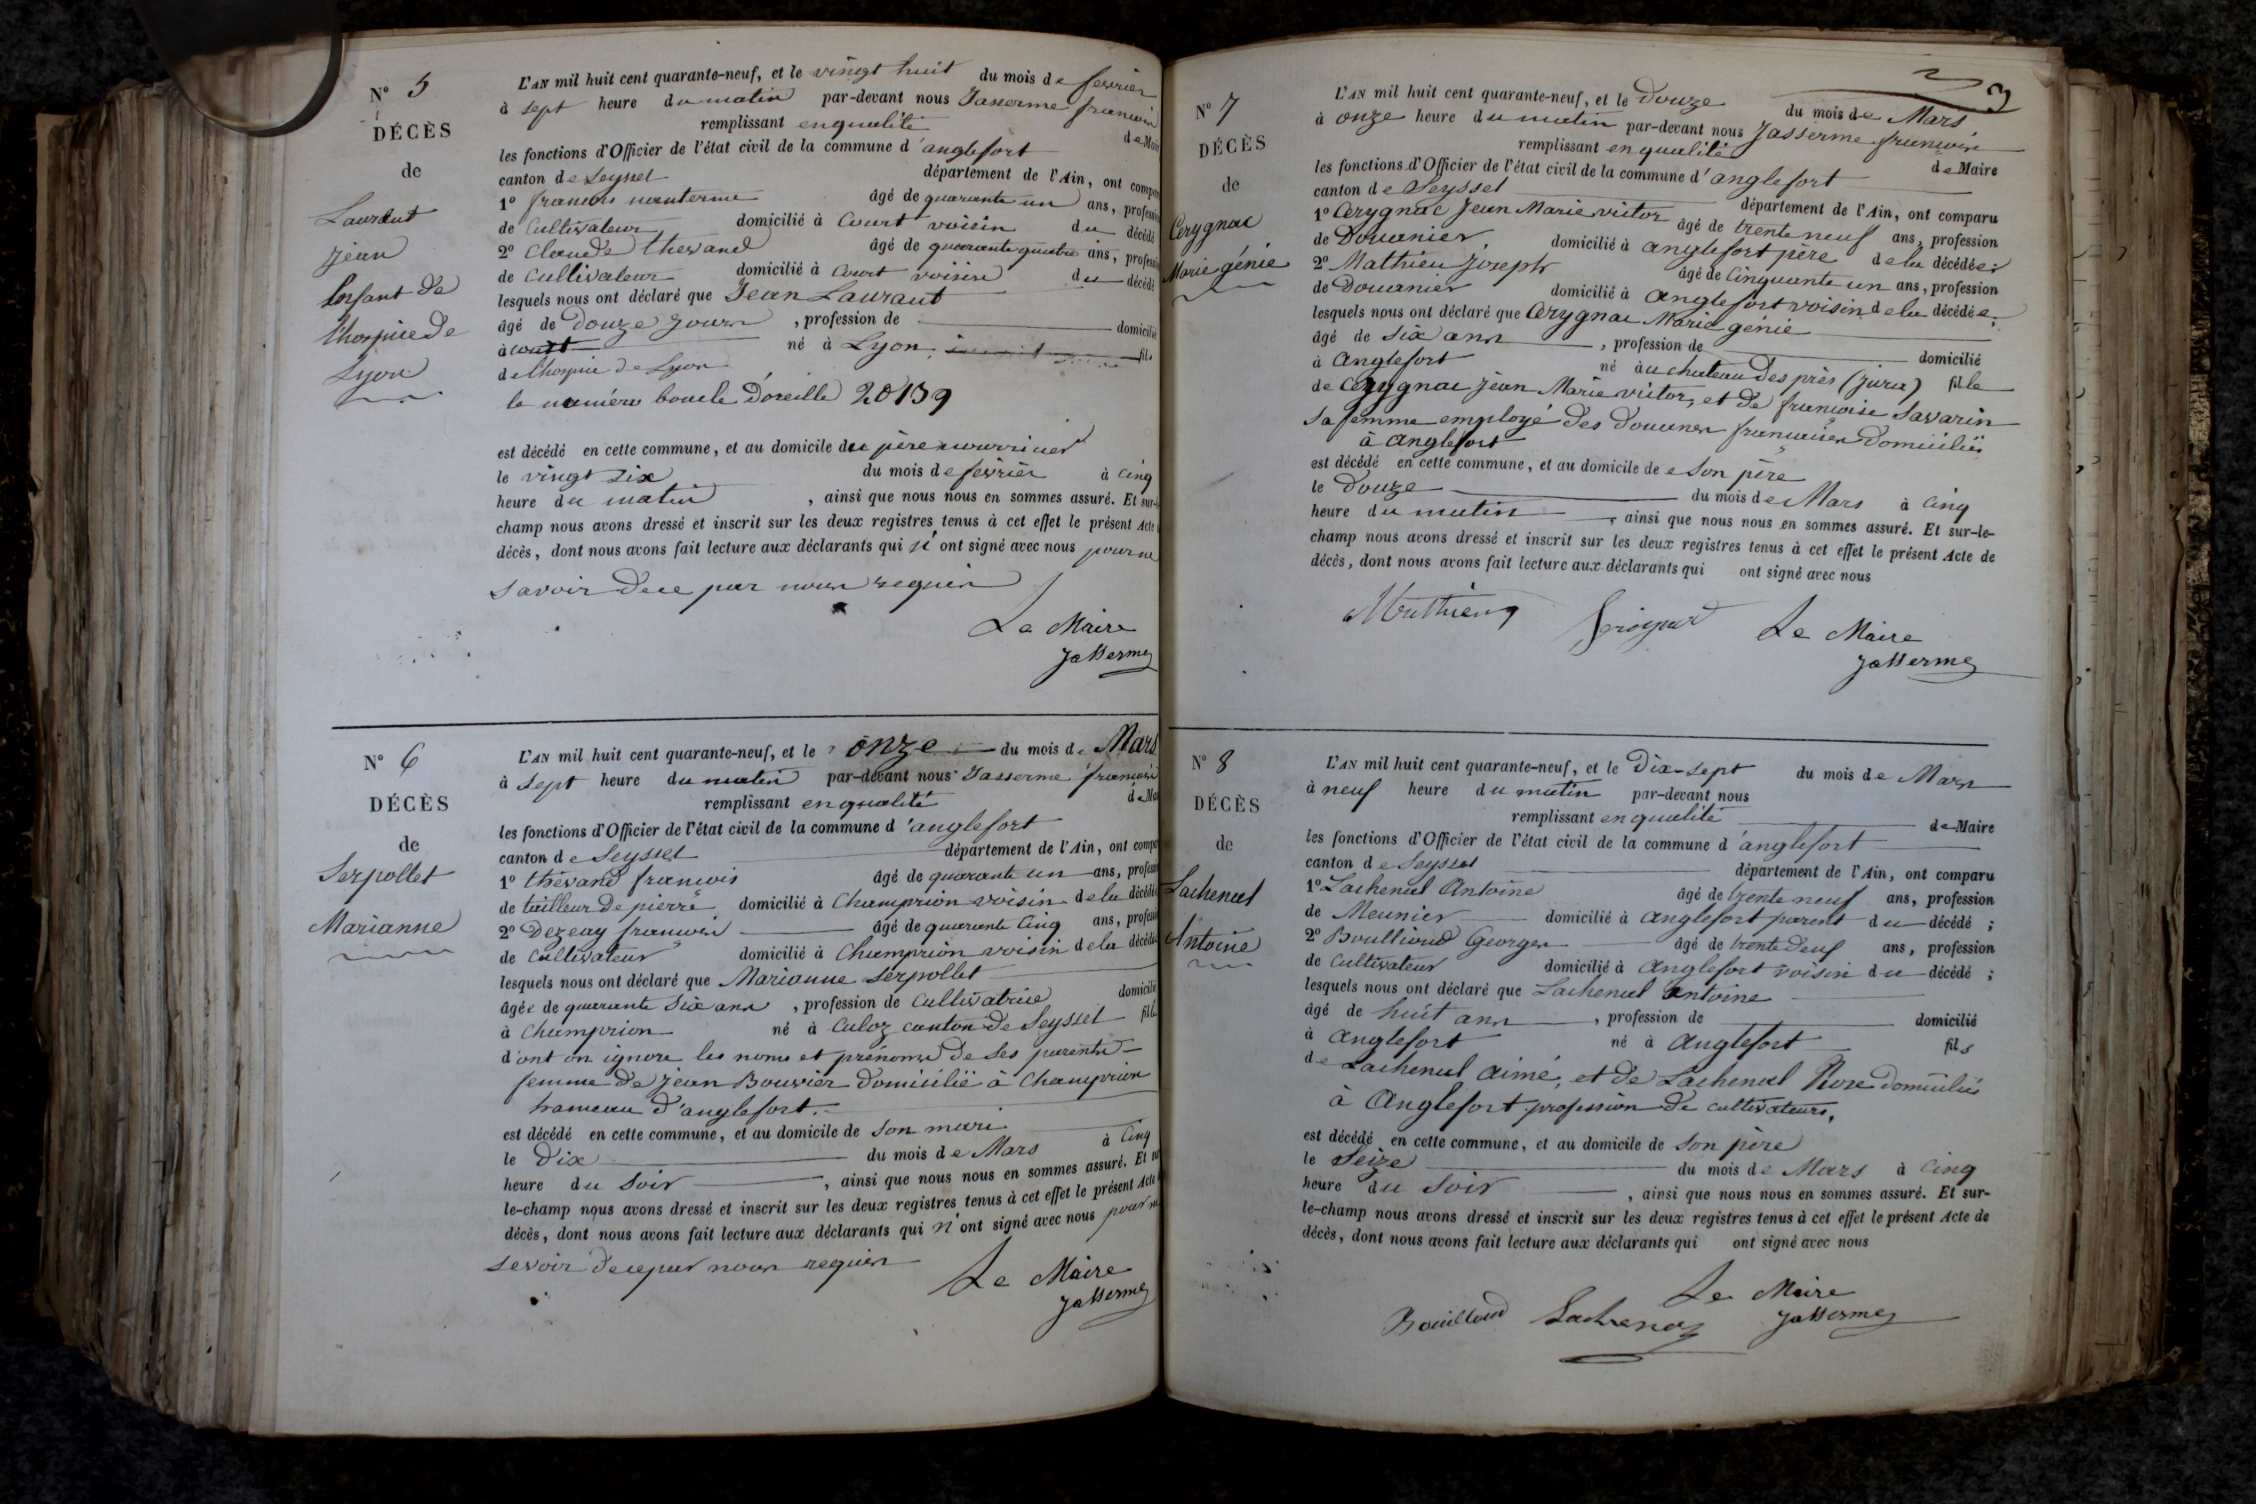 N° 5
DÉCÈS
de
Laurant
Jean
Enfant de
l'hospice de
Lyon
L'AN mil huit cent quarante-neuf, et le vingt huit du mois de fevrier
à sept heure du matin par-devant nous Jasserme francois
remplissant en qualité de Maire
les fonctions d'Officier de l'état civil de la commune d'anglefort
canton de Seyssel département de l'Ain, ont comparu
1° francois âgé de quarante un ans, profession
de Cultivateur domicilié à Court voisin du décédé
2° Claude thevand âgé de quarante quatre ans, profession
de Cultivateur domicilié à Court voisin du décédé
lesquels nous ont déclaré que Jean Laurant
âgé de Douze Jours , profession de domicilié
à Court né à Lyon, fils
de l'hospice de Lyon
le numéro boucle D'oreille 20139
est décédé en cette commune, et au domicile du père nourricier
le vingt six du mois de fevrier à Cinq
heure du matin , ainsi que nous nous en sommes assuré. Et sur-le-
champ nous avons dressé et inscrit sur les deux registres tenus à cet effet le présent Acte
décès, dont nous avons fait lecture aux déclarants qui n' ont signé avec nous pour ne
savoir de ce par nous requis
Le Maire
Jasserme
N° 6
DÉCÈS
de
Serpollet
Marianne
L'AN mil huit cent quarante-neuf, et le onze du mois de Mars
à sept heure du matin par-devant nous Jasserme francois
remplissant en qualité de Mai
les fonctions d'Officier de l'état civil de la commune d'anglefort
canton de Seyssel département de l'Ain, ont compa
1° thévand francois âgé de quarante un ans, profession
de tailleur de pierre domicilié à Champrion voisin de la décédé
2° Dezeay francois âgé de quarante Cinq ans, profession
de Cultivateur domicilié à Champrion voisin de la décédé
lesquels nous ont déclaré que Marianne Serpollet
âgée de quarante Six ans , profession de Cultivatrice domicilié
à Champrion né à Culoz canton de Seyssel fille
d'ont on ignore les noms et prénoms de ses parents
femme de Jean Bouvier Domicilié à Champrion
hameau d'anglefort.
est décédé en cette commune, et au domicile de son mari
le Dix du mois de Mars à Cinq
heure du Soir , ainsi que nous nous en sommes assuré. Et sur
le-champ nous avons dressé et inscrit sur les deux registres tenus à cet effet le présent Acte
décès, dont nous avons fait lecture aux déclarants qui n' ont signé avec nous pour ne
savoir de ce par nous requis
Le Maire
Jasserme
3
N° 7
DÉCÈS
de
Cerygnac
Marie génie
L'AN mil huit cent quarante-neuf, et le Douze du mois de Mars
à onze heure du matin par-devant nous Jasserme francois
remplissant en qualité de Maire
les fonctions d'Officier de l'état civil de la commune d'anglefort
canton de Seyssel département de l'Ain, ont comparu
1° Cerygnac Jean Marie victor âgé de trente neuf ans, profession
de Douanier, domicilié à anglefort père de la décédée;
2° Mathieu Joseph âgé de Cinquante un ans, profession
de Douanier domicilié à anglefort voisin de la décédée;
lesquels nous ont déclaré que Cerygnac Marie génie
âgé de Six ans , profession de domicilié
à Anglefort né au chateau des près (Jura) fille
de Cerygnac Jean Marie victor, et de françoise Savarin
Sa femme employé des Douanes françaises Domiciliés
à Anglefort
est décédé en cette commune, et au domicile de Son père
le Douze du mois de Mars à Cinq
heure du matin , ainsi que nous nous en sommes assuré. Et sur-le-
champ nous avons dressé et inscrit sur les deux registres tenus à cet effet le présent Acte de
décès, dont nous avons fait lecture aux déclarants qui ont signé avec nous
Mathieu Le Maire
Jasserme
N° 8
DÉCÈS
de
Lachenal
Antoine
L'AN mil huit cent quarante-neuf, et le Dix-sept du mois de Mars
à neuf heure du matin par-devant nous
remplissant en qualité de Maire
les fonctions d'Officier de l'état civil de la commune d'anglefort
canton de Seyssel département de l'Ain, ont comparu
1° Lachenal Antoine âgé de trente neuf ans, profession
de Meunier domicilié à anglefort parent du décédé ;
2° Boulliand Georges âgé de trente deux ans, profession
de Cultivateur domicilié à Anglefort voisin du décédé ;
lesquels nous ont déclaré que Lachenal Antoine
âgé de huit ans , profession de domicilié
à Anglefort né à Anglefort fils
de Lachenal Aimé, et de Lachenal Rose domiciliés
à Anglefort profession de cultivateurs,
est décédé en cette commune, et au domicile de Son père
le Seize du mois de Mars à Cinq
heure du Soir , ainsi que nous nous en sommes assuré. Et sur-
le-champ nous avons dressé et inscrit sur les deux registres tenus à cet effet le présent Acte de
décès, dont nous avons fait lecture aux déclarants qui ont signé avec nous
Le Maire
Bouilloud Lachenal Jasserme